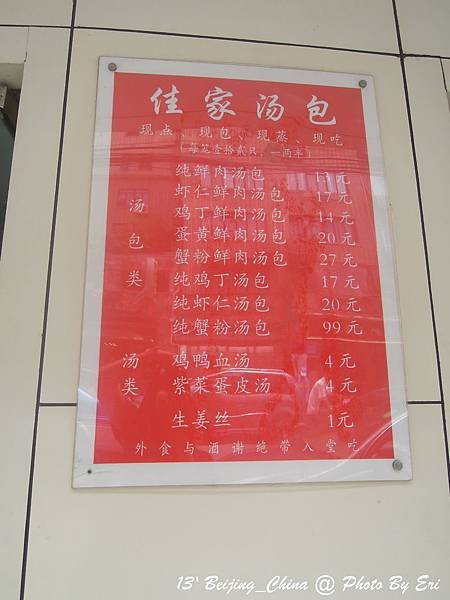 佳家汤包
现点、现包、现蒸、现吃
(每笼壹拾贰只,一两半)
汤包类
纯鲜肉汤包 13元
虾仁鲜肉汤包 17元
鸡丁鲜肉汤包 14元
蛋黄鲜肉汤包 20元
蟹粉鲜肉汤包 27元
纯鸡丁汤包 17元
纯虾仁汤包 20元
纯蟹粉汤包 99元
汤类
鸡鸭血汤 4元
紫菜蛋皮汤 4元
生姜丝 1元
外食与酒谢绝带入堂吃
13' Beijing_China @ Photo By Eri